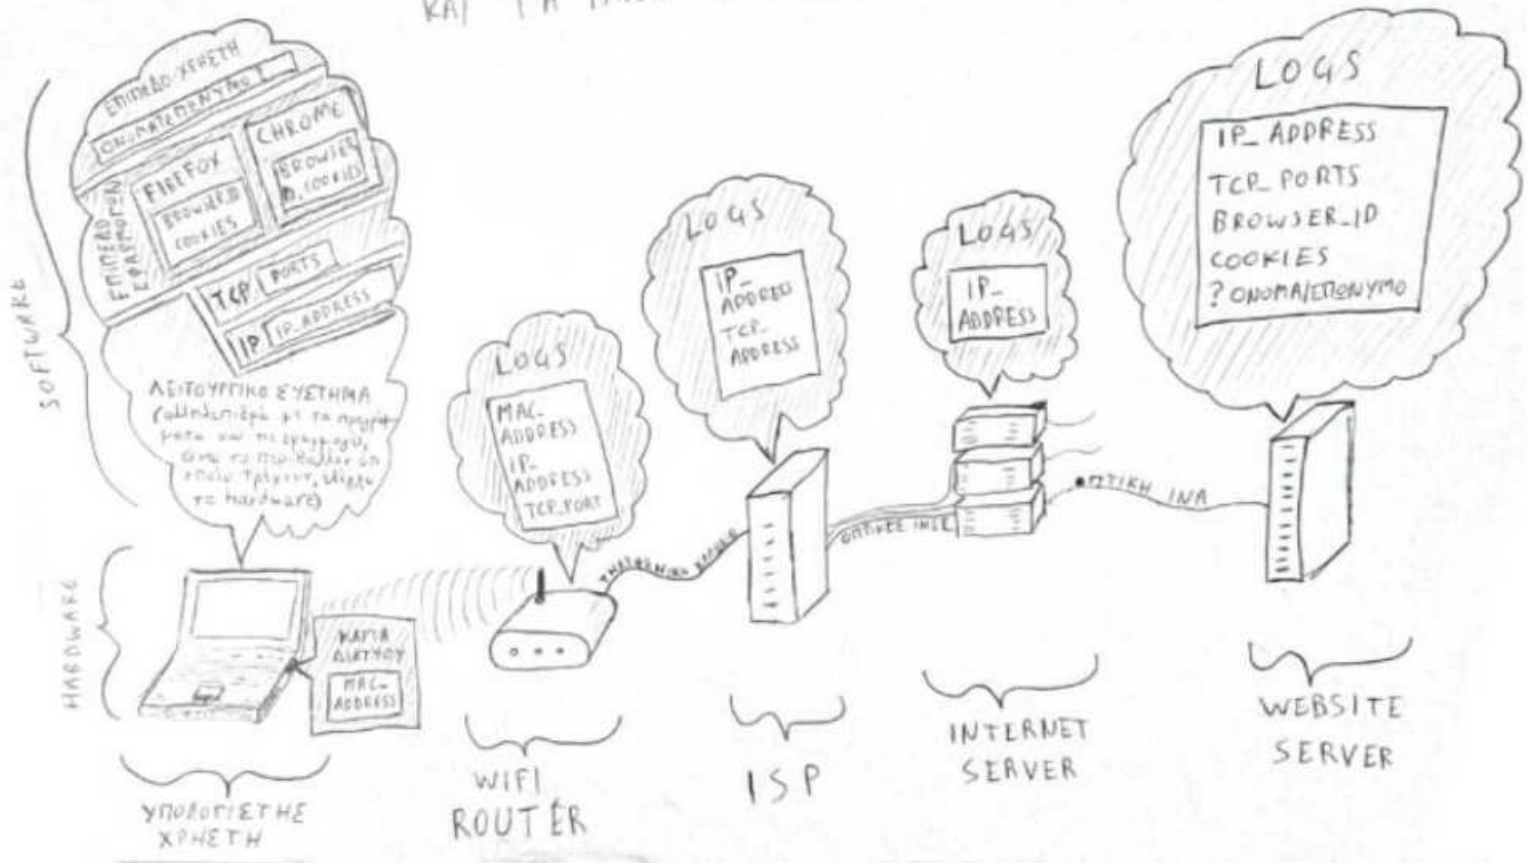 ΚΑΙ ΤΑ
ΕΠΙΠΕΔΟ ΧΡΗΣΤΗ
ΟΝΟΜΑΤΕΠΩΝΥΜΟ
ΕΠΙΠΕΔΟ
ΕΦΑΡΜΟΓΩΝ
FIREFOX
BROWSER_ID
COOKIES
CHROME
BROWSER
ID, COOKIES
TCP PORTS
IP IP_ADDRESS
ΛΕΙΤΟΥΡΓΙΚΟ ΣΥΣΤΗΜΑ
(αλληλεπιδρά με τα προγράμ-
ματα
το hardware)
SOFTWARE
HARDWARE
ΚΑΡΤΑ
ΔΙΚΤΥΟΥ
MAC_
ADDRESS
ΥΠΟΛΟΓΙΣΤΗΣ
ΧΡΗΣΤΗ
LOGS
MAC_
ADDRESS
IP_
ADDRESS
TCP_PORT
WIFI
ROUTER
LOGS
IP_
ADDRESS
TCP_
ADDRESS
ISP
ΟΠΤΙΚΕΣ ΙΝΕΣ
LOGS
IP_
ADDRESS
INTERNET
SERVER
ΟΠΤΙΚΗ ΙΝΑ
LOGS
IP_ADDRESS
TCP_PORTS
BROWSER_ID
COOKIES
? ΟΝΟΜΑ/ΕΠΩΝΥΜΟ
WEBSITE
SERVER